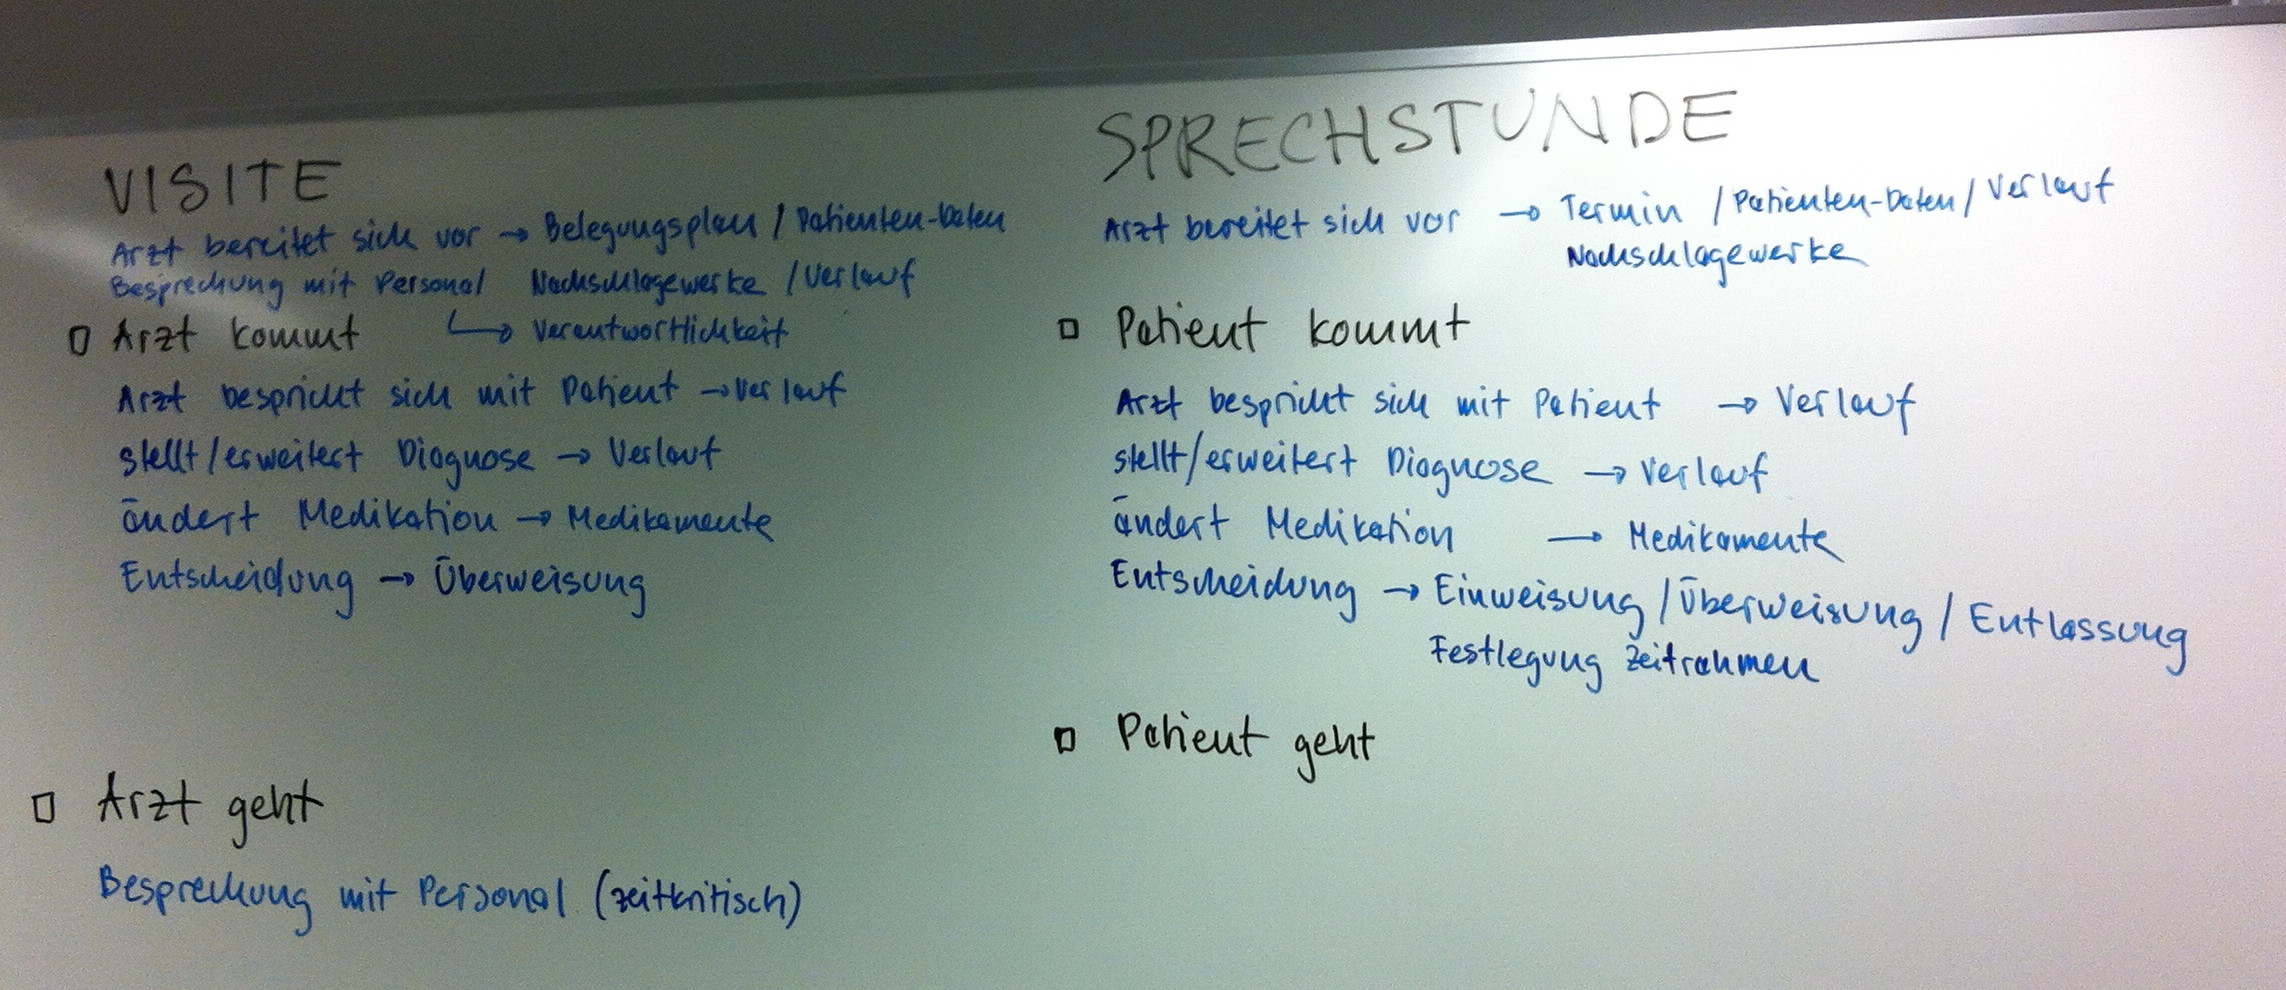 VISITE
Arzt bereitet sich vor → Belegungsplan / Patienten-Daten
Besprechung mit Personal Nachschlagewerke / Verlauf
↳ Verantwortlichkeit
▯ Arzt kommt
Arzt bespricht sich mit Patient → Verlauf
stellt/erweitert Diagnose → Verlauf
ändert Medikation → Medikamente
Entscheidung → Überweisung
▯ Arzt geht
Besprechung mit Personal (zeitkritisch)
SPRECHSTUNDE
Arzt bereitet sich vor → Termin / Patienten-Daten / Verlauf
Nachschlagewerke
▯ Patient kommt
Arzt bespricht sich mit Patient → Verlauf
stellt/erweitert Diagnose → Verlauf
ändert Medikation → Medikamente
Entscheidung → Einweisung / Überweisung / Entlassung
Festlegung Zeitrahmen
▯ Patient geht